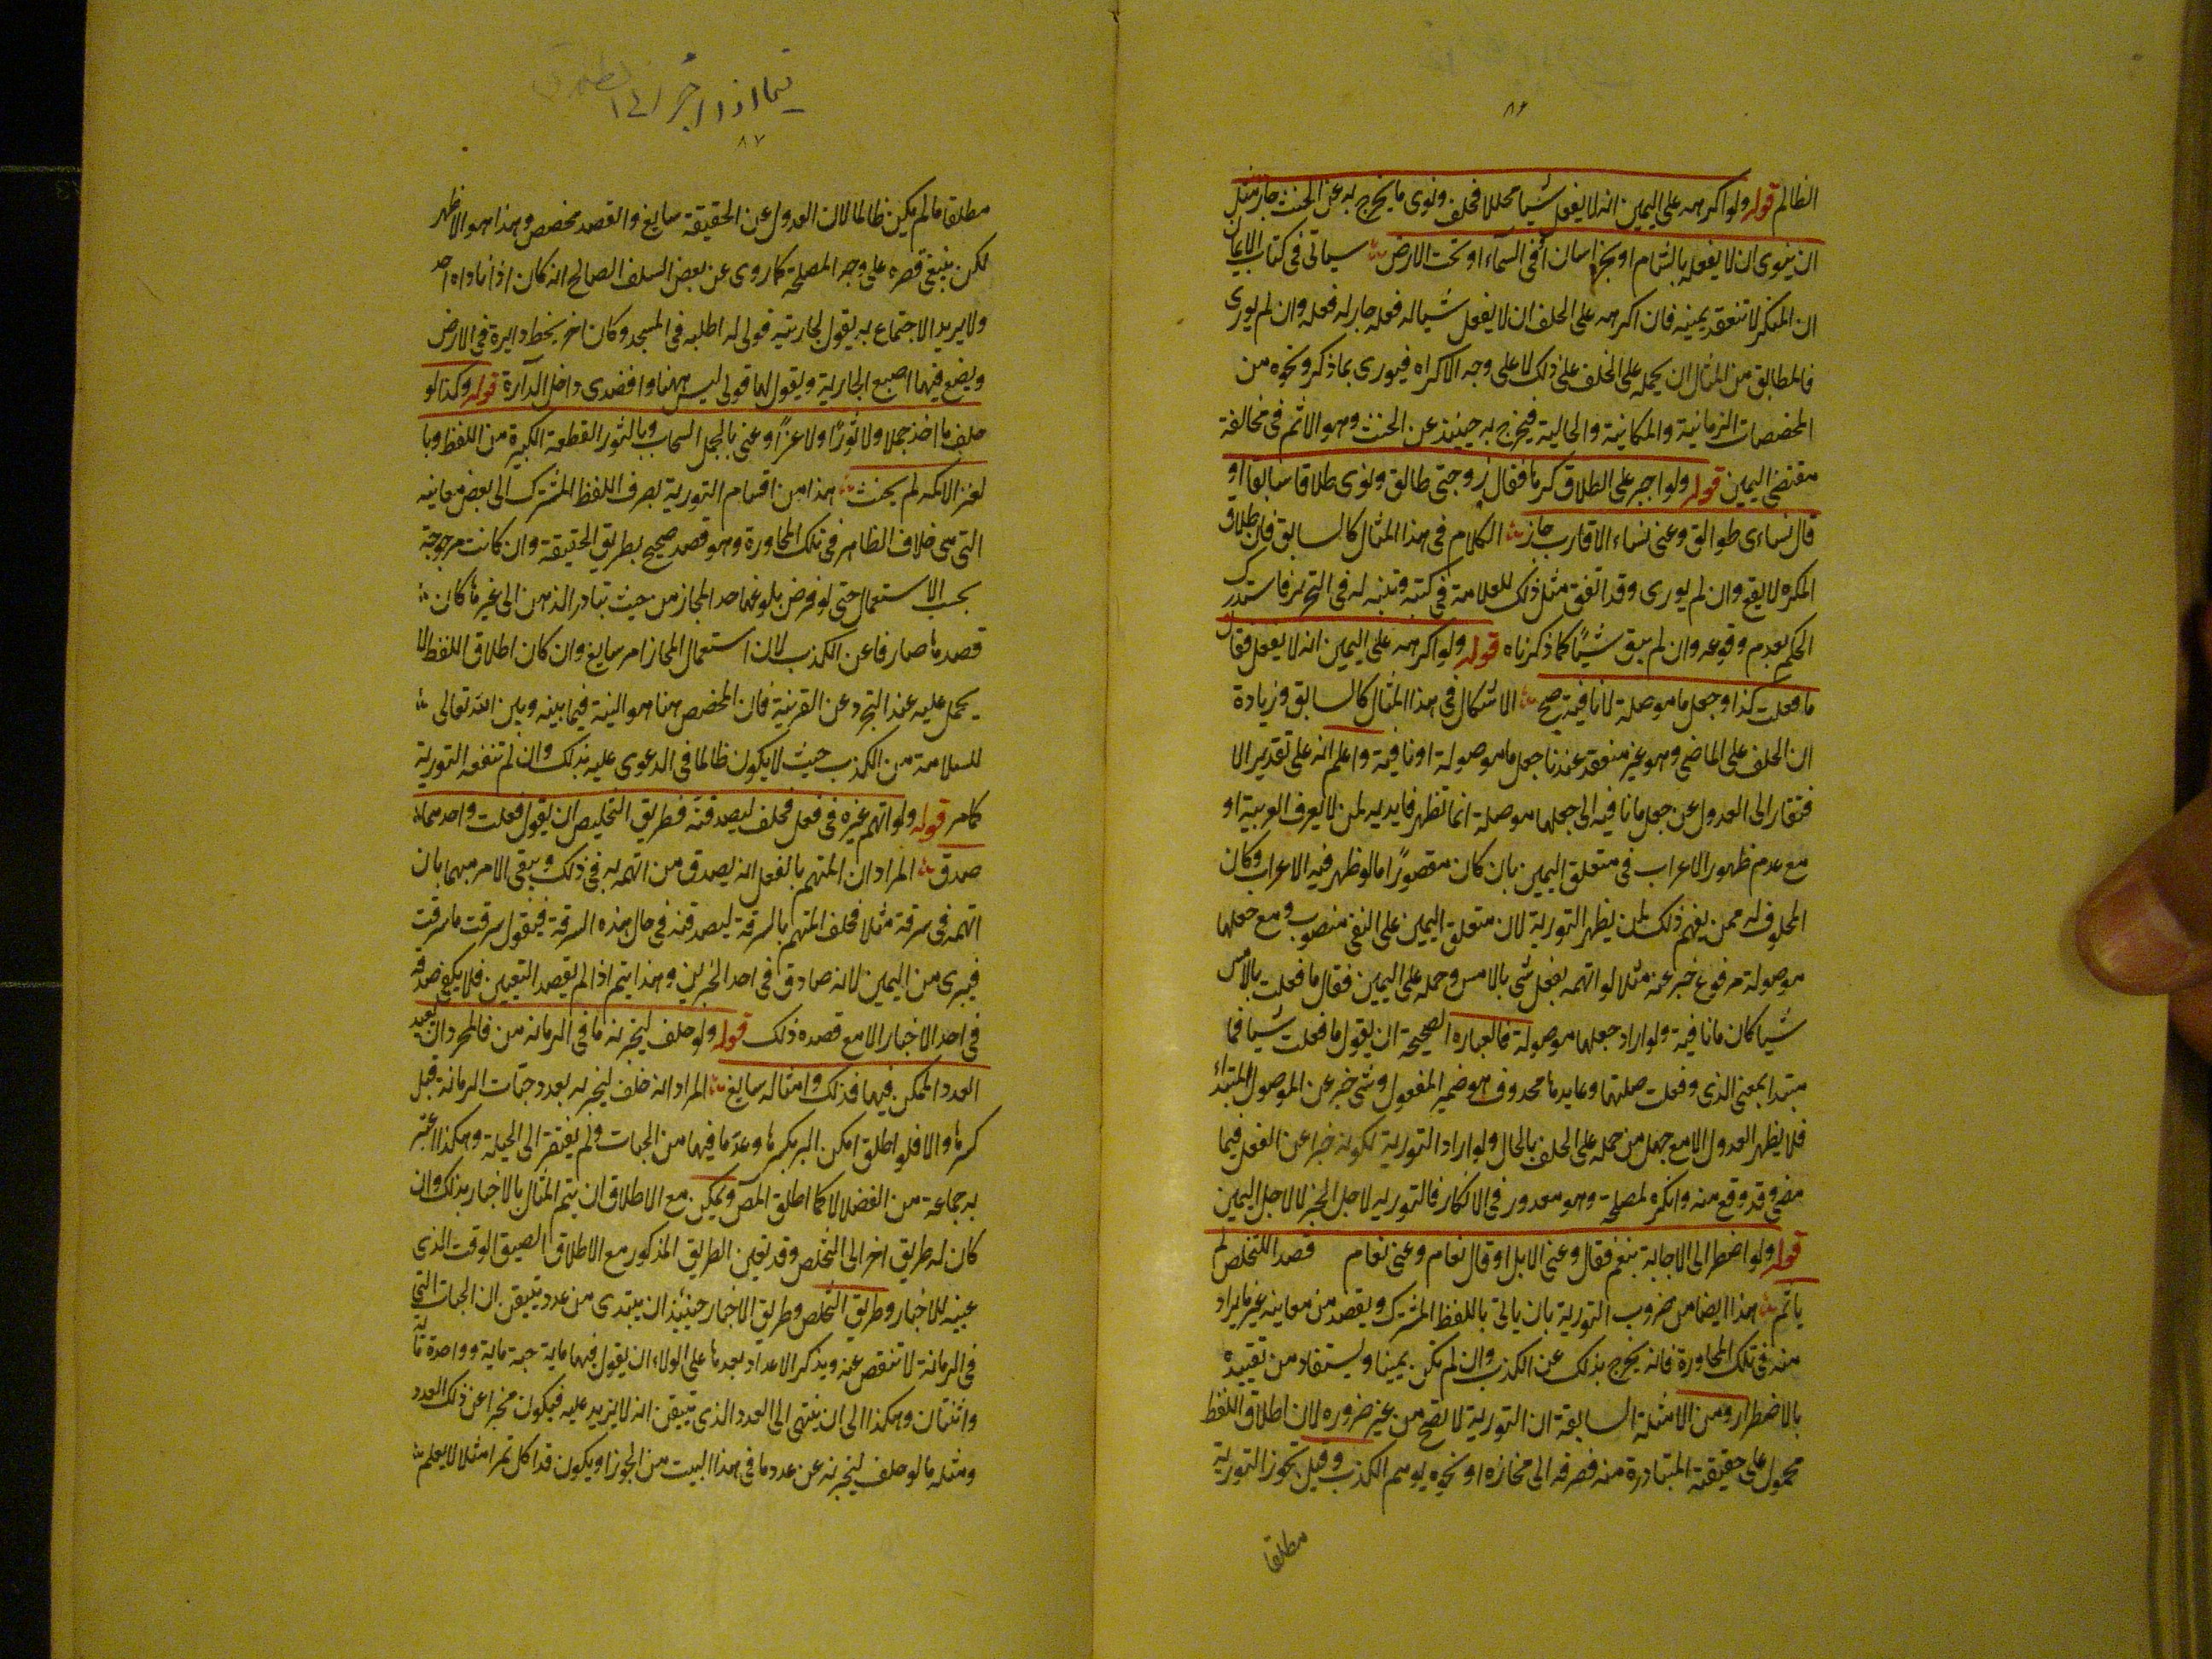 ٨٦
الظالم قوله ولو اكرهه على اليمين انه لا يفعل شيا محللا فحلف ونوى ما يخرج به عن الحنث جاز مثل
ان ينوى ان لا يفعله بالشام او بخراسان او فى السماء او تحت الارض سياتى فى كتاب الايمان
ان المكره لا تنعقد يمينه فان اكرهه على الحلف ان لا يفعل شيا له فعله جاز له فعله وان لم يورى
فالمطابق من المثال ان يحمله على الحلف على ذلك لا على وجه الاكراه فيورى بما ذكر ونحوه من
المخصصات الزمانية والمكانية والحالية فيخرج به حينئذ عن الحنث وهو الاثم فى مخالفة
مقتضى اليمين قوله ولو اجبر على الطلاق كرها فقال زوجتى طالق ونوى طلاقا سابقا او
قال نساءى طوالق وعنى نساء الاقارب جاز الكلام فى هذا المثال كالسابق فان طلاق
المكره لا يقع وان لم يورى وقد اتفق مثل ذلك للعلامة فى كتبه وتنبه له فى التحرير فاستدرك
الحكم بعدم وقوعه وان لم يبق شيئا كما ذكرناه قوله ولو اكرهه على اليمين انه لا يفعل فقال
ما فعلت كذا وجعل ما موصلة لا نافية صح الاشكال فى هذا المثال كالسابق وزيادة
ان الحلف على الماضى وهو غير منعقد عندنا جعل ما موصولة او نافية واعلم انه على تقدير الا
فتقار الى العدول عن جعل ما نافية الى جعلها موصلة انما تظهر فايديه لمن لا يعرف العربية او
مع عدم ظهور الاعراب فى متعلق اليمين بان كان مقصورًا اما لو ظهر فيه الاعراب وكان
المحلوف له ممن يفهم ذلك لمن يظهر التورية لان متعلق اليمين على النفى منصوب ومع جعلها
موصولة مرفوع خبر عنه مثلا لو اتهمه بفعل شى بالامس وحمله على اليمين فقال ما فعلت بالامس
شيا كان ما نافية ولو اراد جعلها موصولة فالعباره الصحيحة ان يقول ما فعلت شيا فما
مبتدا بمعنى الذى وفعلت صلتها وعايدها محذوف هو ضمير المفعول وشى خبر عن الموصول المبتدا
فلا يظهر العدول الا مع جهل من حمله على الحلف بالحال ولو اراد التورية لكونه خبرا عن الفعل فيما
مضى وقد وقع منه وانكره لمصلحة وهو معذور فى الانكار فالتورية لاجل الخبر لا لاجل اليمين
قوله ولو اضطر الى الاجابة بنعم فقال وعنى الابل او قال نعام وعنى نعام قصد التخلص لم
ياثم هذا ايضا من ضروب التورية بان ياتى باللفظ المشترك ويقصد من معانيه غير ما يراد
منه فى تلك المحاورة فانه يخرج بذلك عن الكذب وان لم تكن يمينا ويستفاد من تقييده
بالاضطرار ومن الامثلة السابقة ان التورية لا تصح من غير ضروره لان اطلاق اللفظ
محمول على حقيقته المتبادرة منه فصرفه الى مجازه او نحوه يوهم الكذب وقيل تجوز التورية
مطلقا
٨٧
مطلقا ما لم يكن ظالما لان العدول عن الحقيقة سايغ والقصد مخصص وهذا هو الاظهر
لكن ينبغى قصره على وجه المصلحة كما روى عن بعض السلف الصالح انه كان اذا ناداه احد
ولا يريد الاجتماع به يقول لجاريته قولى له اطلبه فى المسجد وكان اخر يخط دايرة فى الارض
ويضع فيها اصبع الجارية ويقول لها قولى ليس ههنا واقصدى داخل الدآرة قوله وكذا لو
حلف ما اخذ جملا ولا ثورًا ولا عنزًا وعنى بالجمل السحاب وبالثور القطعة الكبيرة من اللفظ وبا
لعنز الاكمه لم يحنث هذا من اقسام التورية بصرف اللفظ المشترك الى بعض معانيه
التى هى خلاف الظاهر فى تلك المحاورة وهو قصد صحيح بطريق الحقيقة وان كانت مرجوحة
بحسب الاستعمال حتى لو فرض بلوغها حد المجاز من حيث تبادر الذهن الى غيرها كان
قصدها صارفا عن الكذب لان استعمال المجاز امر سايغ وان كان اطلاق اللفظ لا
يحمل عليه عند التجرد عن القرينة فان المخصص هنا هو النية فيما بينه وبين الله تعالى
للسلامة من الكذب حيث لا يكون ظالما فى الدعوى عليه بذلك وان لم تنفعه التورية
كما مر قوله ولو اتهم غيره فى فعل فحلف ليصدقنه فطريق التخليص ان يقول فعلت واحدهما
صدق المراد ان المتهم بالفعل انه يصدق من اتهمه به فى ذلك ويبقى الامر مبهما بان
اتهمه فى سرقة مثلا فحلف المتهم بالسرقة ليصدقنه فى حال هذه السرقة فيقول سرقت ما سرقت
فيبرى من اليمين لانه صادق فى احد الخبرين وهذا يتم اذا لم يقصد التعيين فلا يكفى صدقه
فى احد الاخبار الا مع قصده ذلك قوله ولو حلف ليخبرنه ما فى الرمانة من فالمخرج ان يعد
العدد الممكن فيها فذلك وامثاله سايغ المراد انه حلف ليخبرنه بعدد حبات الرمانة قبل
كسرها والا فلو اطلق امكن البر بكسرها وعد ما فيها من الحبات ولم يفتقر الى الحيلة وهكذا عبر
به جماعة من الفضلا لا كما اطلق المص ويمكن مع الاطلاق ان يتم المثال بالاخبار بذلك وان
كان له طريق اخر الى التخلص وقد تعين الطريق المذكور مع الاطلاق لضيق الوقت الذى
عينه للاخبار وطريق التخلص وطريق الاخبار حينئذ ان يبتدى من عدد يتيقن ان الحبات التى
فى الرمانة لا تنقص عنه ويذكر الاعداد بعدها على الولاء ان يقول فيها ماية حبة ماية وواحدة ماية
واثنتان وهكذا الى ان ينتهى الى العدد الذى يتيقن انه لا يزيد عليه فيكون مخبرا عن ذلك العدد
ومثله ما لو حلف ليخبرنه عن عدد ما فى هذا البيت من الجوز او يكون قد اكل تمرا مثلا لا يعلم